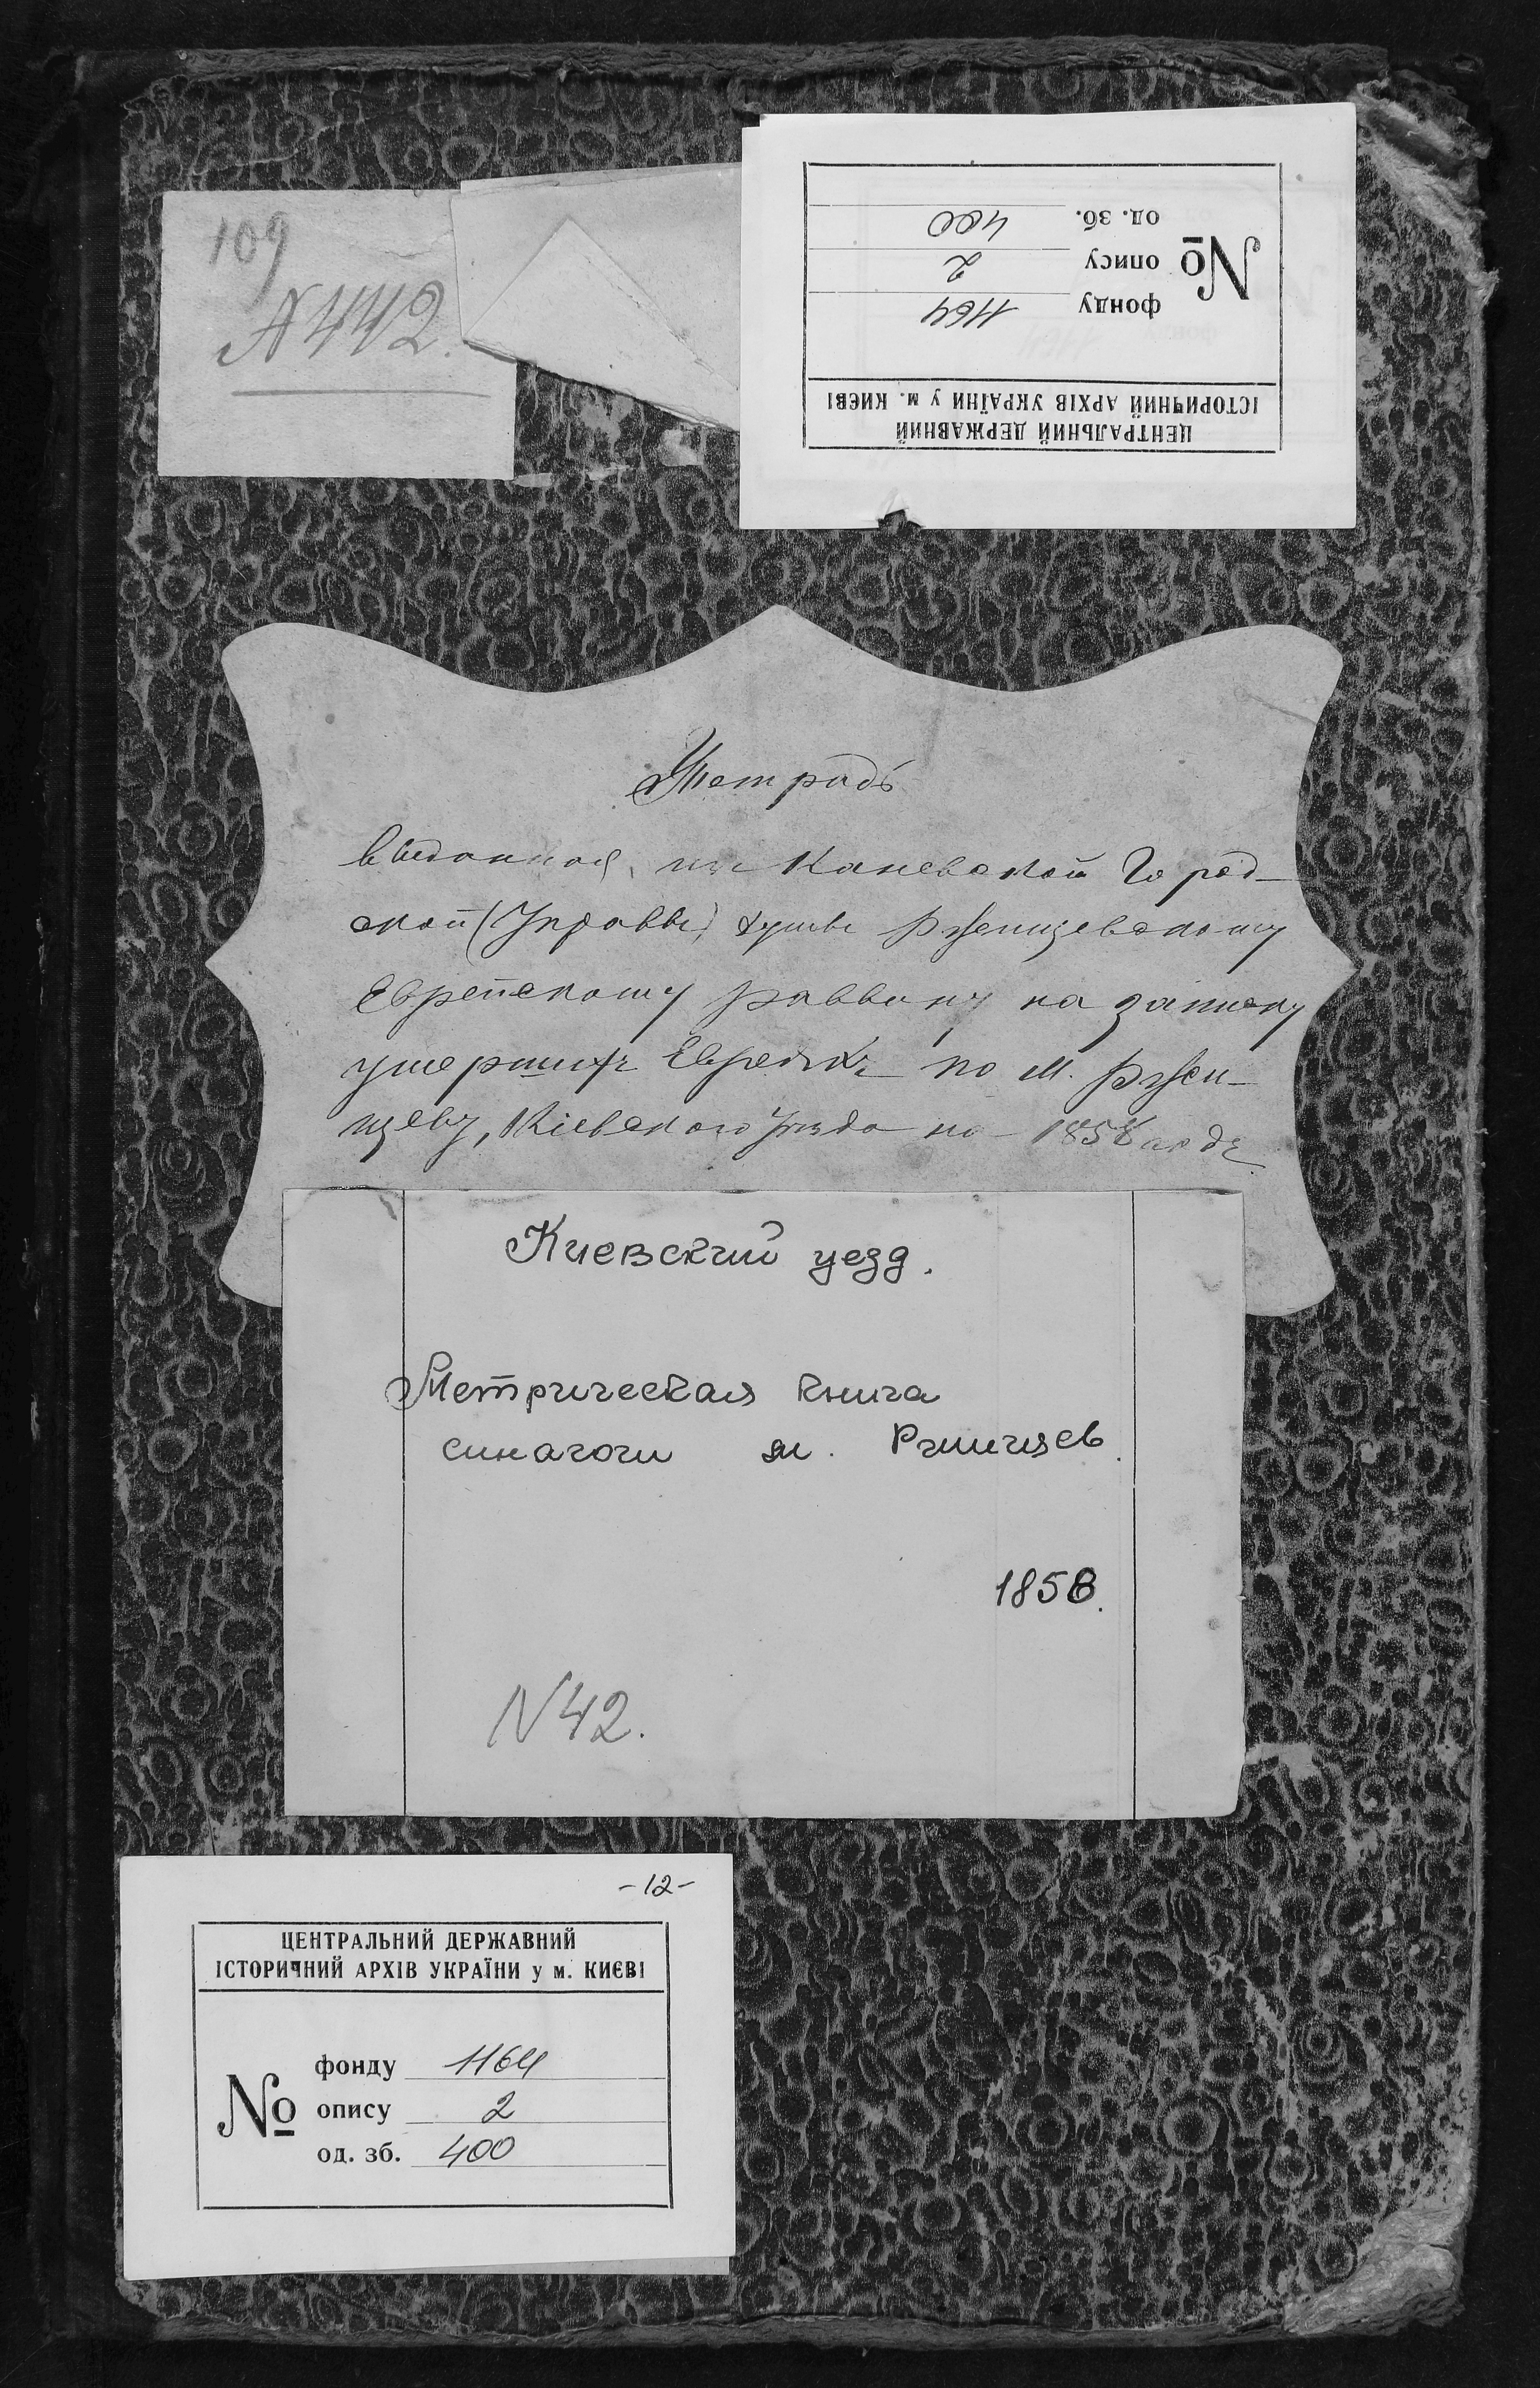 109
№ 442.
ЦЕНТРАЛЬНИЙ ДЕРЖАВНИЙ
ІСТОРИЧНИЙ АРХІВ УКРАЇНИ у м. КИЄВІ
№
фонду 1164
опису 2
од. зб. 400
Тетрадь
выданная, изъ Каневской Город-
ской (Управы) Ржищевскому
Еврейскому раввину на записку
умершихъ Евреевъ по м. Ржи-
щеву, Кіевскаго уѣзда на 1858 годъ
Киевский уезд.
Метрическая книга
синагоги м. Ржищев.
1858.
N 42.
-12-
ЦЕНТРАЛЬНИЙ ДЕРЖАВНИЙ
ІСТОРИЧНИЙ АРХІВ УКРАЇНИ у м. КИЄВІ
№
фонду 1164
опису 2
од. зб. 400